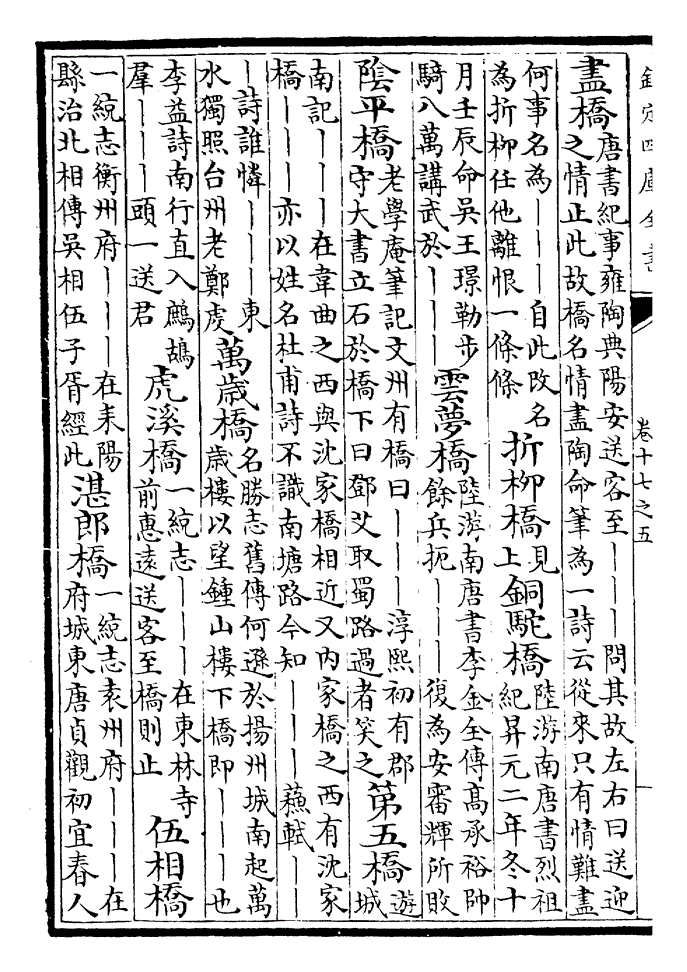 欽定四庫全書
卷十七之五
盡橋
唐書紀事雍陶典陽安送客至｜｜｜問其故左右曰送迎
之情止此故橋名情盡陶命筆為一詩云從來只有情難盡
何事名為｜｜｜自此改名
為折柳任他離恨一條條
折柳橋
見
上
銅駝橋
陸游南唐書烈祖
紀昇元二年冬十
月壬辰命吳王璟勒步
騎八萬講武於｜｜｜
雲夢橋
陸游南唐書李金全傳高承裕帥
餘兵扼｜｜｜復為安審輝所敗
陰平橋
老學庵筆記文州有橋曰｜｜｜淳熙初有郡
守大書立石於橋下曰鄧艾取蜀路過者笑之
第五橋
遊
城
南記｜｜｜在韋曲之西與沈家橋相近又内家橋之西有沈家
橋｜｜｜亦以姓名杜甫詩不識南塘路今知｜｜｜蘓軾｜
｜詩誰憐｜｜｜東
水獨照台州老鄭虔
萬歲橋
名勝志舊傳何遜於揚州城南起萬
歲樓以望鍾山樓下橋即｜｜｜也
李益詩南行直入鷓鴣
羣｜｜｜頭一送君
虎溪橋
一統志｜｜｜在東林寺
前惠遠送客至橋則止
伍相橋
一統志衡州府｜｜｜在耒陽
縣治北相傳吳相伍子胥經此
湛郎橋
一統志袁州府｜｜｜在
府城東唐貞觀初宜春人